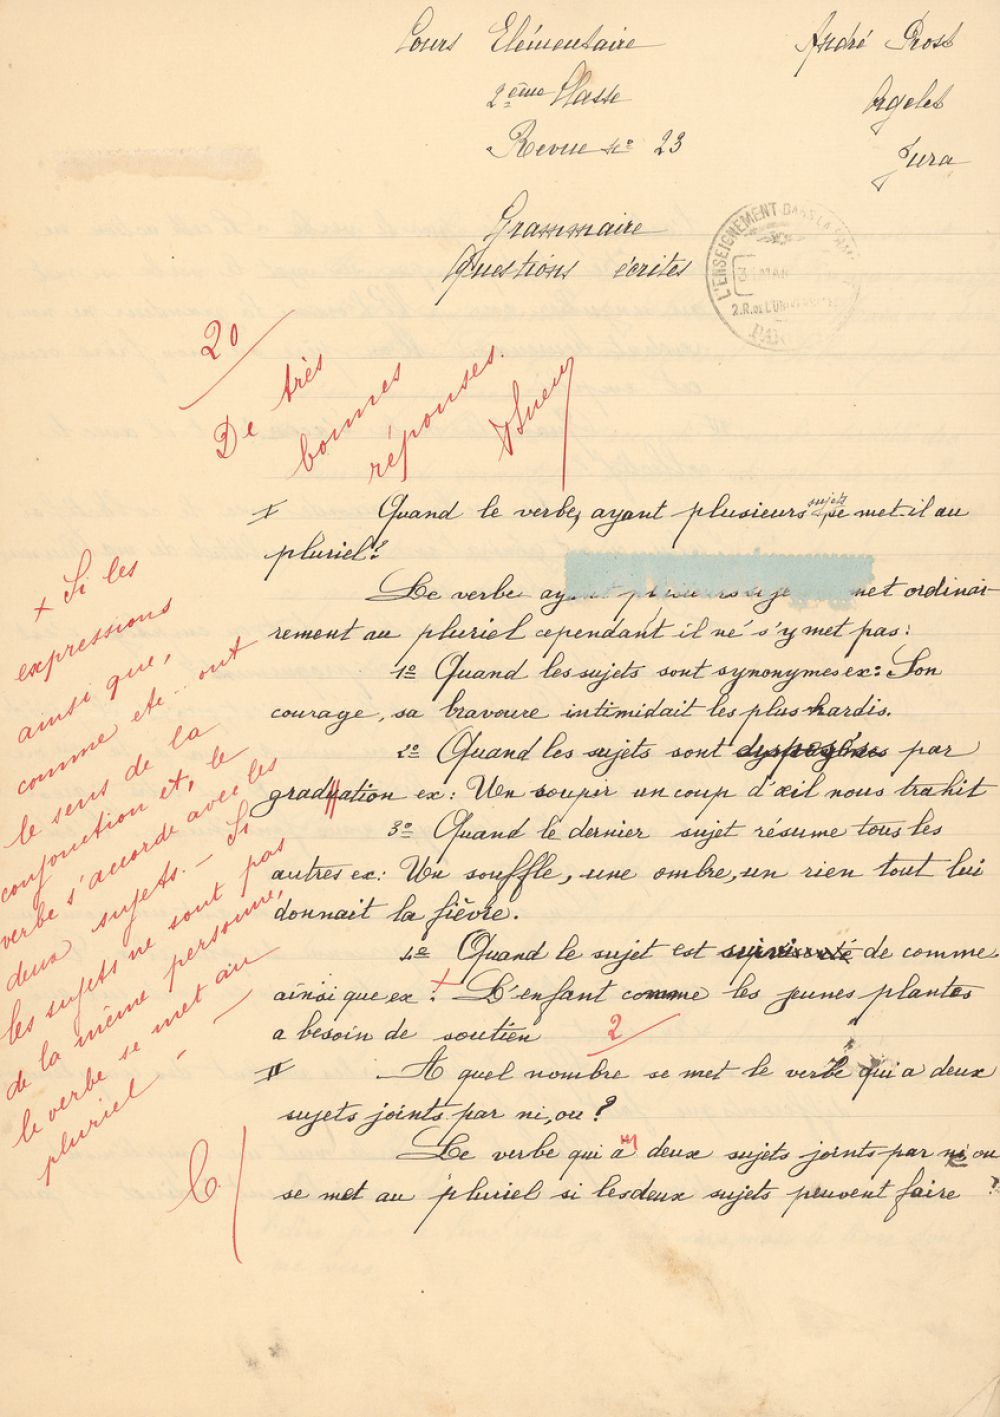 Cours Elémentaire
André Prost
2ème Classe
Orgelet
Revue No 23
Jura
Grammaire
Questions écrites
L'ENSEIGNEMENT DANS LA FAMI
3 MAR
2.R.DE L'UNIVERSITE
PARIS
20
De très
bonnes
réponses.
I Quand le verbe, ayant plusieurs sujets se met-il au
pluriel?
Le verbe ayant plusieurs suje met ordinai-
rement au pluriel cependant il ne s'y met pas:
1o Quand les sujets sont synonymes ex: Son
courage, sa bravoure intimidait les plus hardis.
2o Quand les sujets sont par
graduation ex: Un soupir un coup d'œil nous trahit
3o Quand le dernier sujet résume tous les
autres ex: Un souffle, une ombre, un rien tout lui
donnait la fièvre.
4o Quand le sujet est de comme
ainsi que ex: + L'enfant comme les jeunes plantes
a besoin de soutien 2
II A quel nombre se met le verbe qui a deux
sujets joints par ni, ou?
Le verbe qui a deux sujets joints par ni ou
se met au pluriel si les deux sujets peuvent faire
+ Si les
expressions
ainsi que,
comme etc.. ont
le sens de la
conjonction et, le
verbe s'accorde avec les
deux sujets. - Si
les sujets ne sont pas
de la même personne,
le verbe se met au
pluriel -